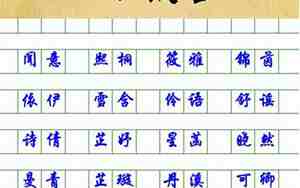 闻意 熙桐 筱雅 锦茵
依伊 雪含 伶语 舒谣
诗倩 芷妤 星菡 晓然
曼青 芷璇 丹溪 可卿